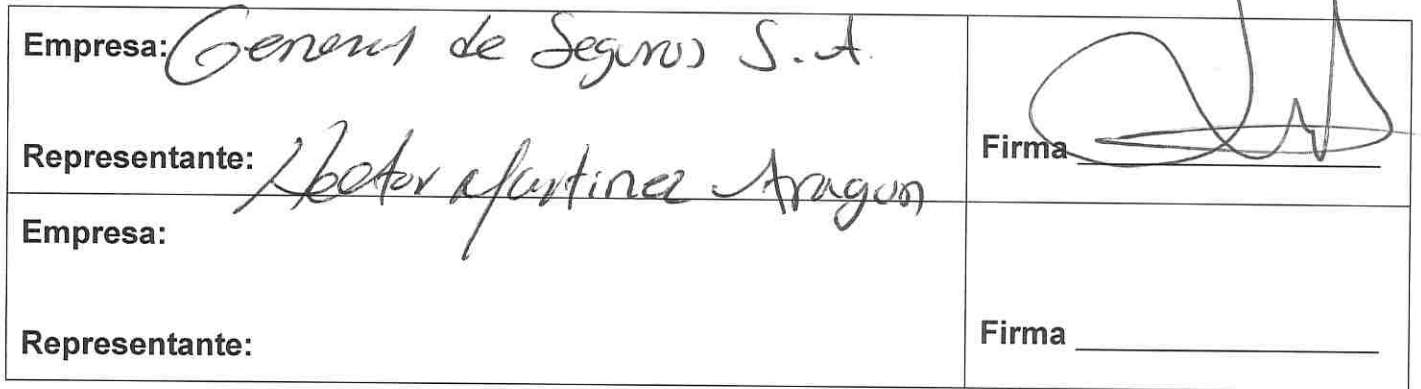 Empresa: General de Seguros S.A.
Representante: Hector Martinez Aragon
Firma
Empresa:
Representante:
Firma